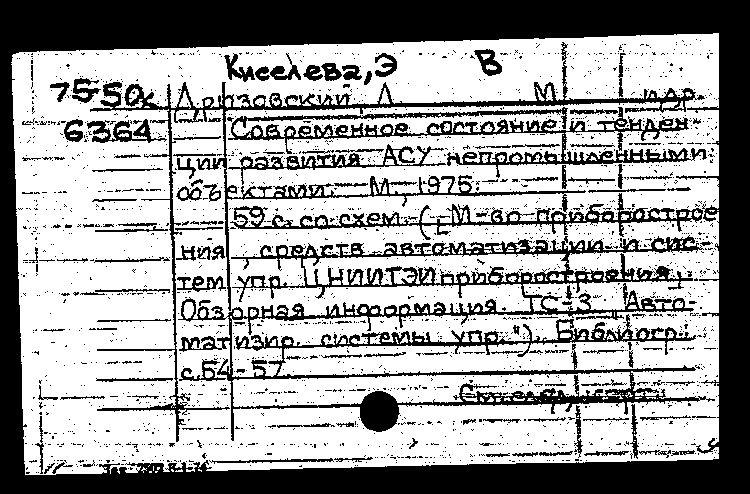 Киселева, Э В
75-50к Дризовский, Л М и др.
6364 Современное состояние и тенден-
ции развития АСУ непромышленными
объектами. М., 1975.
59 с. со схем. ([М-во приборострое
ния, средств автоматизации и сис-
тем упр. ЦНИИТЭИприборостроения.
Обзорная информация. ТС-3 "Авто-
матизир. системы упр."). Библиогр.:
с. 54-57.